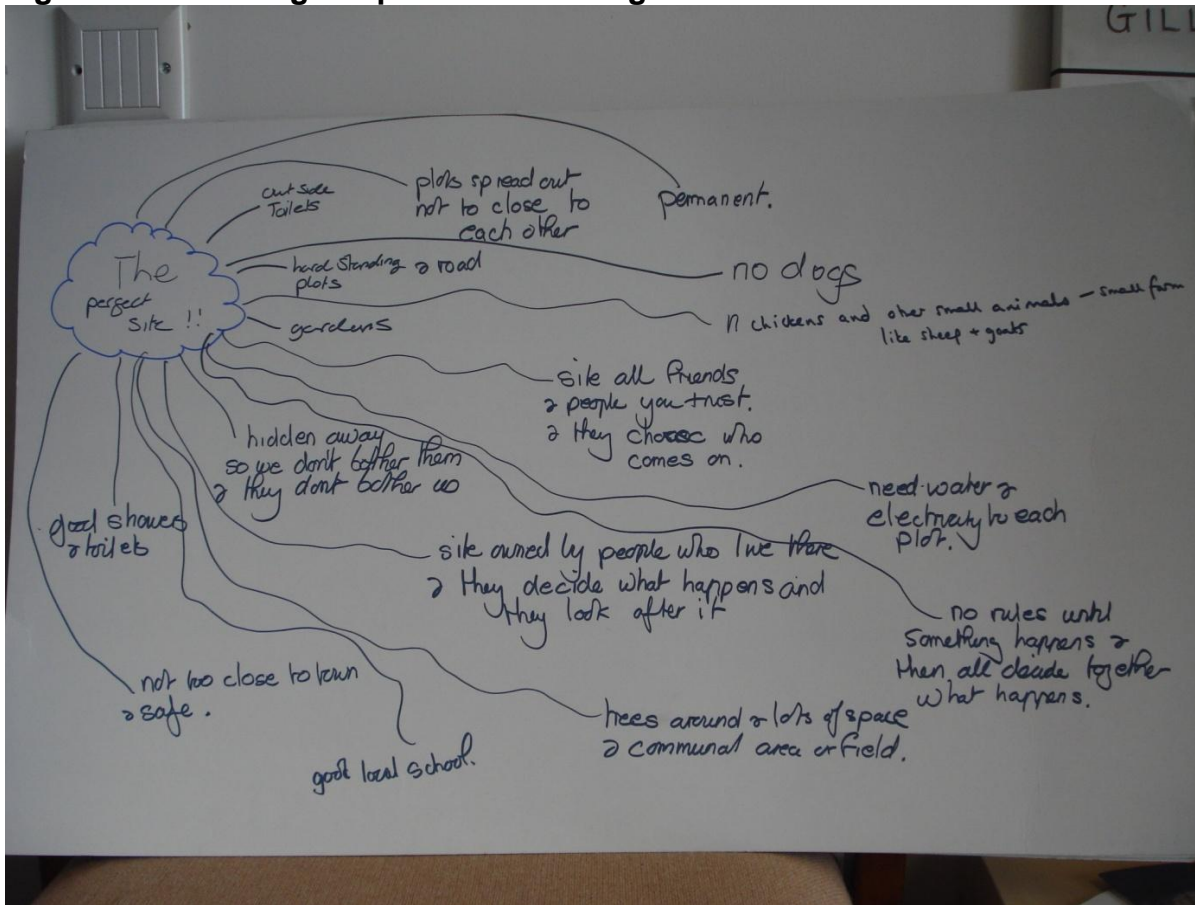 GILL
The
perfect
site !!
outside
Toilets
plots spread out
not to close to
each other
permanent.
hard standing & road
plots
no dogs
chickens and other small animals – small farm
like sheep + goats
gardens
site all friends
& people you trust.
& they choose who
comes on.
hidden away
so we don't bother them
& they dont bother us
need water &
electricity to each
plot.
good showers
& toilets
site owned by people who live there
& they decide what happens and
they look after it
no rules until
something happens &
then all decide together
what happens.
not too close to town
& safe.
trees around & lots of space
& communal area or field.
good local school.